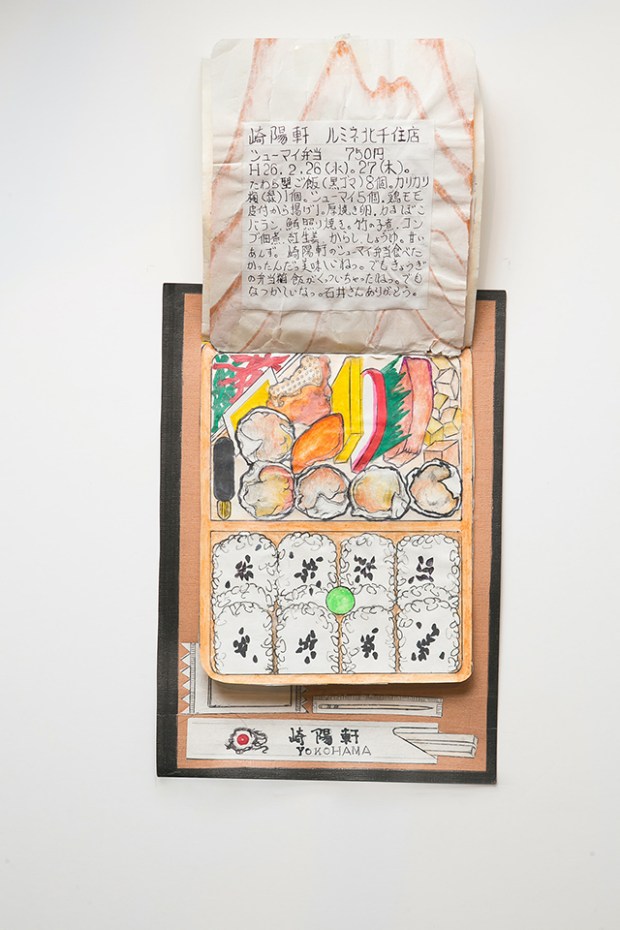 崎陽軒 ルミネ北千住店
シューマイ弁当 750円
H26.2.26(水)。27(木)。
たわら型ご飯(黒ゴマ)8個。カリカリ
梅(緑)1個。シューマイ5個。鶏モモ
皮付から揚げ1。厚焼き卵。かまぼこ
バラン。鮪照り焼き。竹の子煮。コン
ブ佃煮。紅生姜。からし。しょうゆ。甘い
あんず。崎陽軒のシューマイ弁当食べた
かったんだっ美味いねっ。でもきょうぎ
の弁当箱飯がくっついちゃったねっ。でも
なつかしいなっ。石井さんありがとう。
崎陽軒
YOKOHAMA